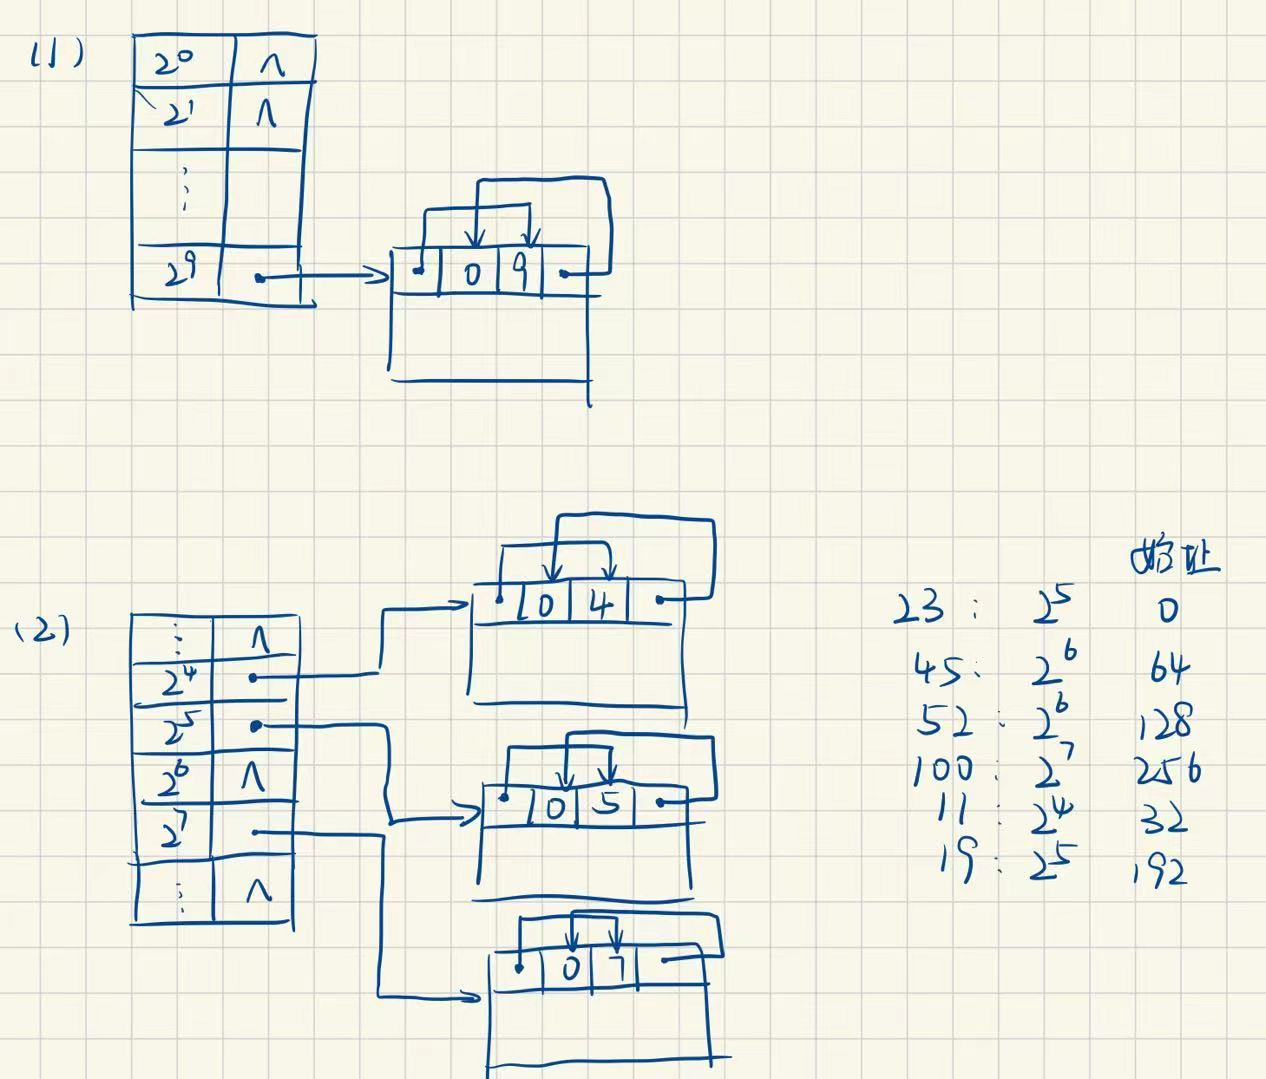 (1)
2⁰ Λ
2¹ Λ
⋮
2⁹
0 9
(2)
⋮ Λ
2⁴
2⁵
2⁶ Λ
2⁷
⋮ Λ
0 4
0 5
0 7
始址
23 : 2⁵ 0
45 : 2⁶ 64
52 : 2⁶ 128
100 : 2⁷ 256
11 : 2⁴ 32
19 : 2⁵ 192